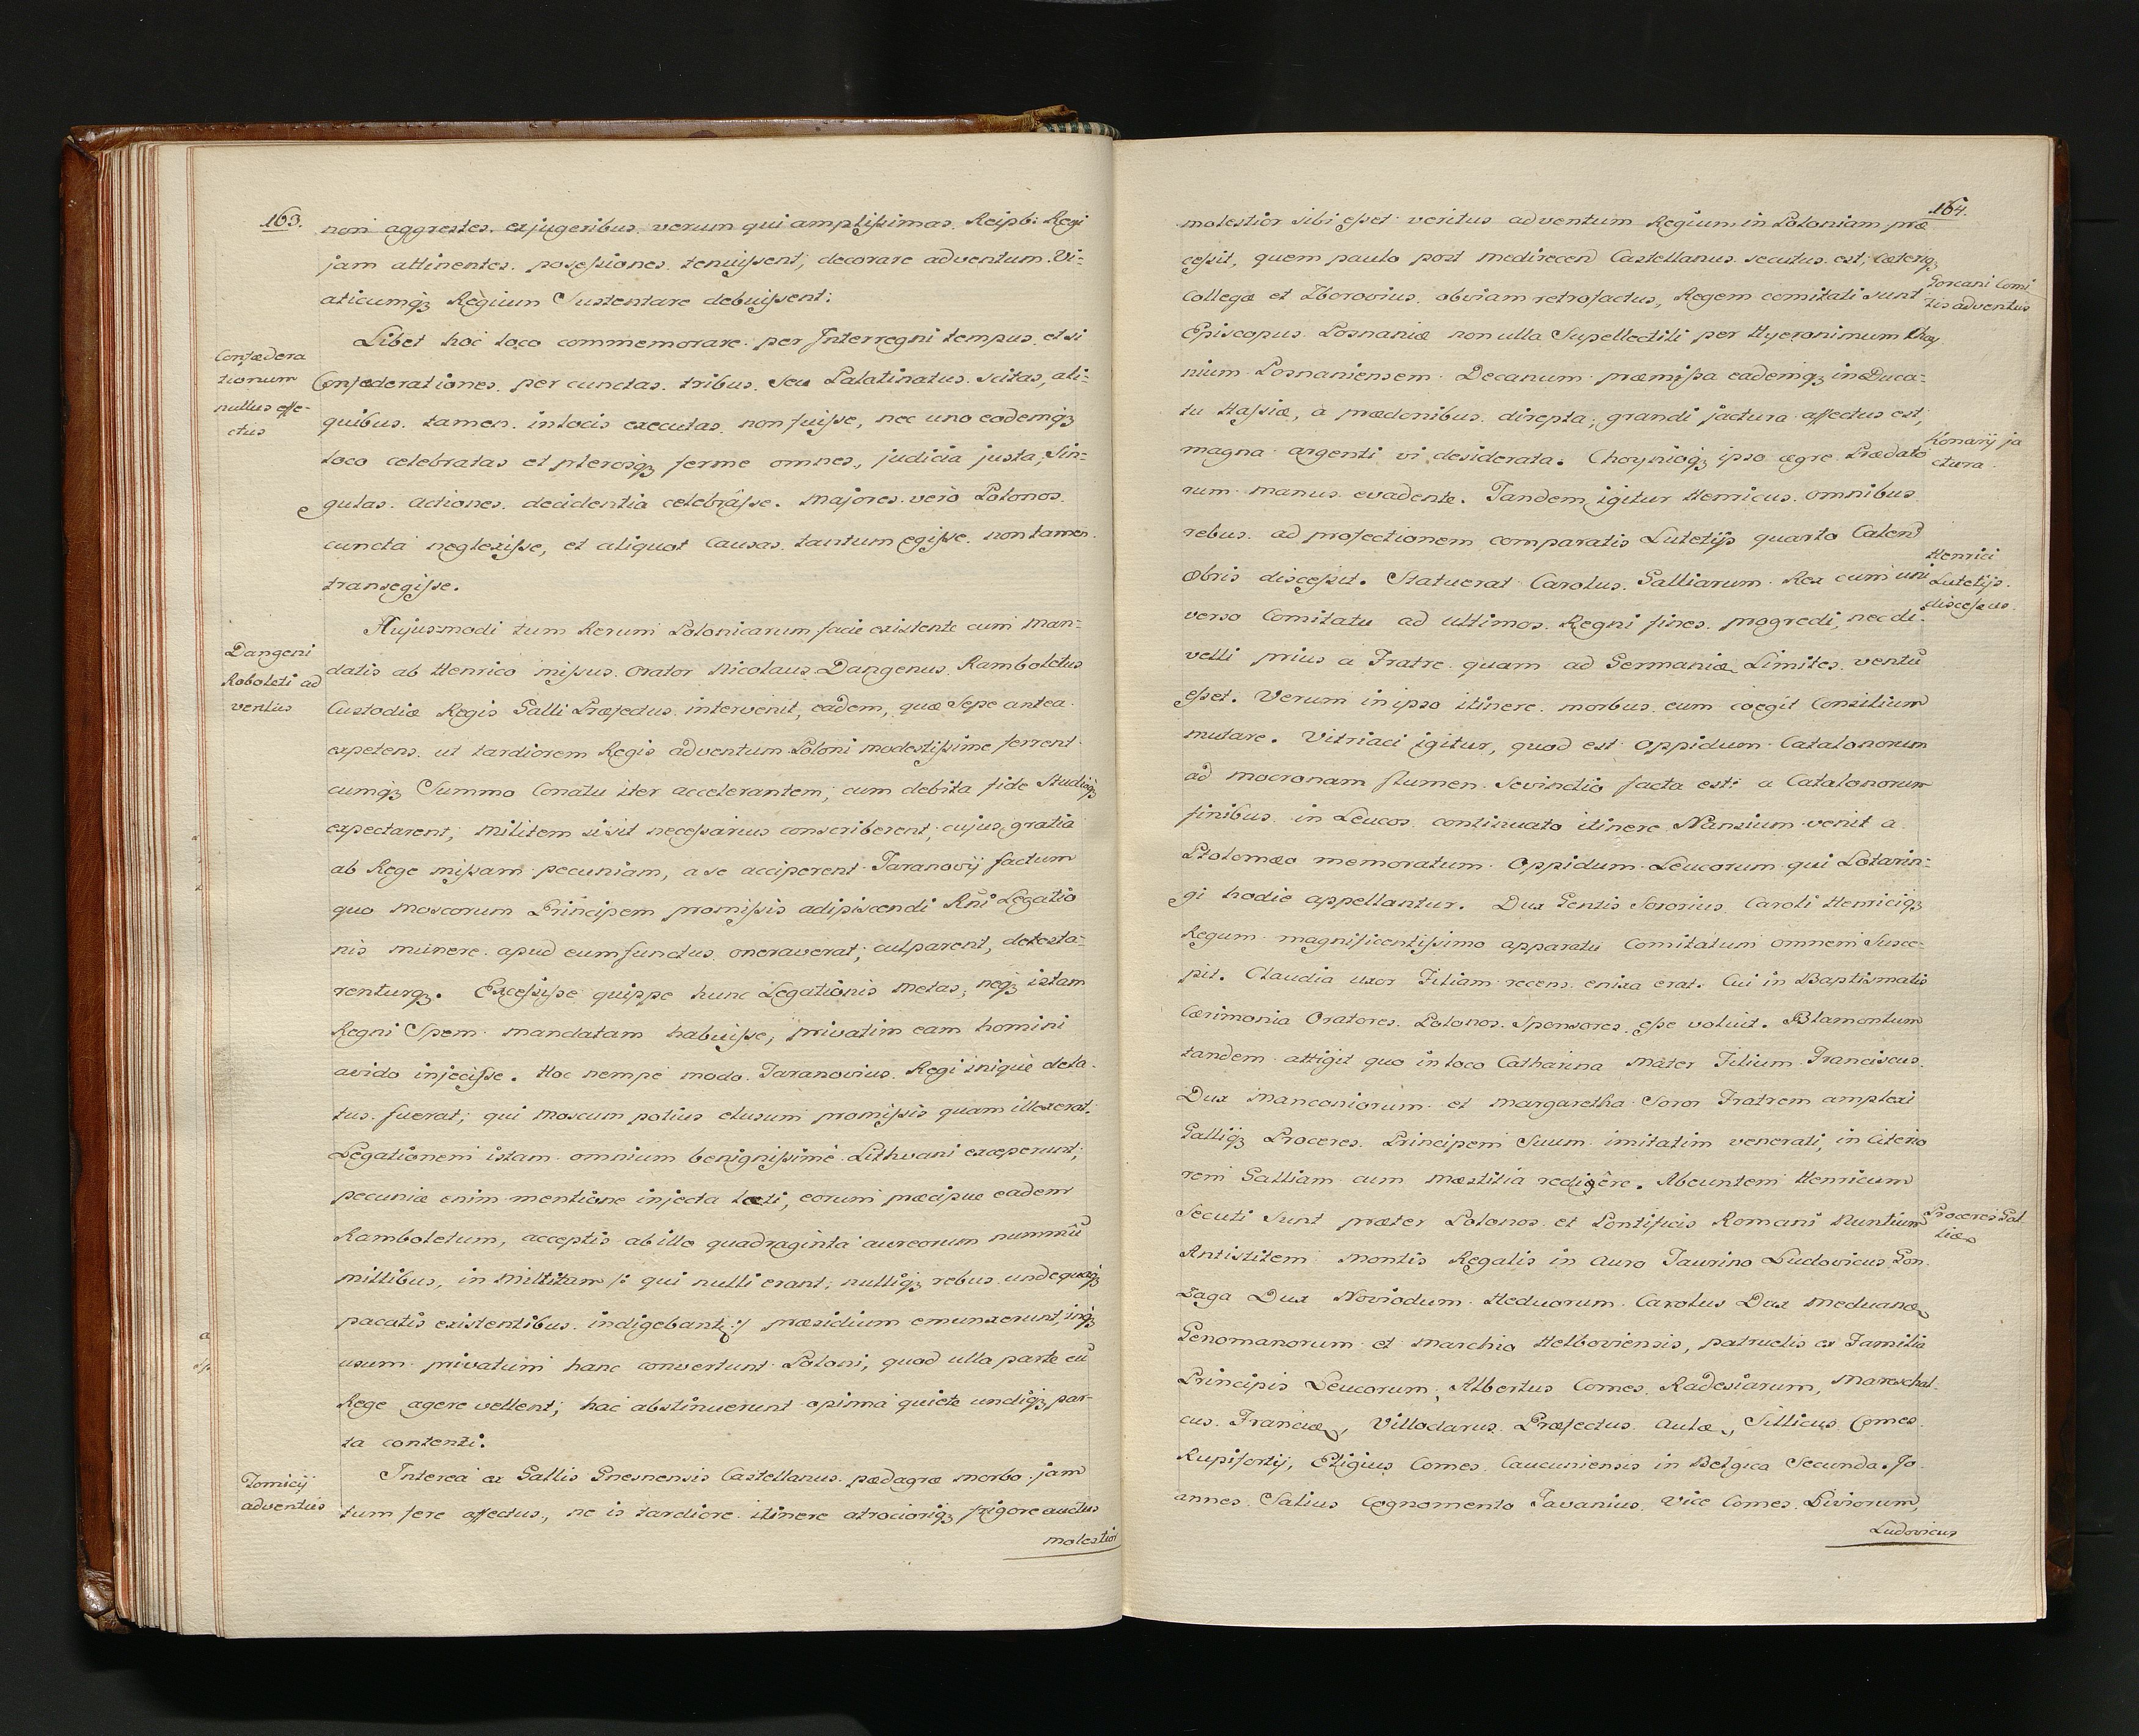 163.
non aggrestes. exjugeribus. verum qui amplißimas. Reipb: Regi
jam attinentes. poseßiones. tenuißent; decorare adventum. Vi-
aticumq3 Règium Sustentare debuißent:
Libet hoc loco commemorare per Interregni tempus. et si
Confæderationes. per cunctas. tribus. seu Palatinatus. scitas, ali-
quibus. tamen. in locis executas. non fuiße, nec uno eodemq3
loco celebratas et plerosq3 ferme omnes., judicia justa, sin-
gulas. actiones. decidentia celebrâße. Majores. verò Polonos.
cuncta neglexiße, et aliquot Causas. tantum egiße. non tamen.
transegiße.
Confædera
tionum
nullus effe-
ctus
Hujusmodi tum Rerum Polonicarum facie existente cum man-
datis ab Henrico mißus. Orator Nicolaus Dangenus. Ramboletus
Custodiæ Regis Galli Præfectus. intervenit, eadem, quæ Sepe antea.
expetens. ut tardiorem Regis adventum Poloni modestißime ferrent.
cumq3 Summo Conatu iter accelerantem; cum debita fide Studioq3
expectarent; militem si sit neceßarius conscriberent; cujus gratia
ab Rege mißam pecuniam, a se acciperent. Taranovij factum
quo Moscorum Principem promißis adipiscendi Rñi Legatio
nis munere. apud eum functus. oneraverat; culparent, detesta-
renturq3. Exceßiße quippe hunc Legationis metas; neq3 istam
Regni Spem. mandatam habuiße; privatim eam homini
avido injeciße. Hoc nempe modo. Taranovius. Regi iniquè dela-
tus. fuerat; qui Moscum potius elusum promißis quam illexerat.
Legationem istam omnium benignißime. Lithvani exceperunt;
pecuniæ enim mentione injecta læti, eorum præcipue eadem
Ramboletum, acceptis ab illo quadraginta aureorum nummũ
millibus, in militam /: qui nulli erant; nulliq3 rebus undequaq3
pacatis existentibus. indigebant :/ præsidium emunxerunt; inq3
usum privatum hanc convertunt. Poloni, quod ulla parte cũ
Rege agere vellent; hac abstinuerunt opima quiete undiq3 par-
ta contenti.
Dangeni
Roboleti ad
ventus
Interea ex Gallis Gnesnensis Castellanus. pædagræ morbo. jam
tum fere affectus., ne is tardiore itinere atrociorìq3 frigore auctus
molestior
Tomicij
adventus
164.
molestior sibi eßet veritus adventum Regium in Poloniam præ
ceßit, quem paulo post Medirecen Castellanus. secutus. est; cæteriq3
Collegæ et Zborovius. obviam retrofactus, Regem comitati sunt
Gorcani Comi
tis adventus
Episcopus. Posnaniæ non ulla Supellectili per Hyeronimum Choy
nium. Posnaniensem. Decanum præmißa eademq3 in Duca-
tu Haßiæ, a prædonibus. direpta; grandi jactura affectus est;
magna argenti vi desiderata. Choynioq3 ipso ægre Prædato
rum manus evadente. Tandem igitur Henricus. omnibus.
Konarij ja
ctura.
rebus. ad profectionem comparatis Lutetijs quarto Calend
8bris disceßit. Statuerat Carolus. Galliarum. Rex cum uni
verso Comitatu ad ultimos. Regni fines. progredi; nec di-
velli prius a Fratre quam ad Germaniæ Limites. ventũ
eßet. Verum in ipso itinere. morbus. eum coegit Consilium
Henrici
Lutetijs.
disceßus.
mutare. Vitriaci igitur, quod est oppidum Catalonorum
ad mocronam flumen sevinctio facta est: a Catalonorum
finibus. in Leucos. continuato itinere Nansium venit a
Ptolomæo memoratum. Oppidum Leucorum qui Lotarin-
gi hodie appellantur. Dux Gentis Sororius. Caroli Henriciq3
Regum magnificentißimo apparatu Comitatum omnem Susce-
pit. Claudia uxor Filiam recens. enixa erat. Cui in Baptismatis
Cærimonia Oratores. Polonos. Sponsores. eße voluit. Blamontum
tandem attigit quo in loco Catharina Mater Filium Franciscus.
Dux Manconiorum et Margaretha Soror Fratrem amplexi
Galliq3 Proceres. Principem Suum imitatim venerati, in Citerio
rem Galliam cum mæstitia redigêre. Abeuntem Henricum
Secuti Sunt præter Polonos. et Pontificis Romani Nuntium
Proceres Gal
liæ
Antistitem Montis Regalis in auro Taurino Ludovicus. Gon
zaga Dux Noviodum. Heduorum. Carolus Dux Meduanæ
Genomanorum et Marchio Helboviensis, patruelis ex Familia
Principis Leucorum; Albertus Comes. Radesiarum, Mareschal-
cus. Franciæ, Villoclarus. Præfectus. Aulæ, Sillicus. Comes.
Rupifortij, Eligius Comes. Caucuniensis in Belgica Secunda. Jo
annes. Salius Cognomento Tavanius. Vice Comes. Liviorum,
Ludovicus